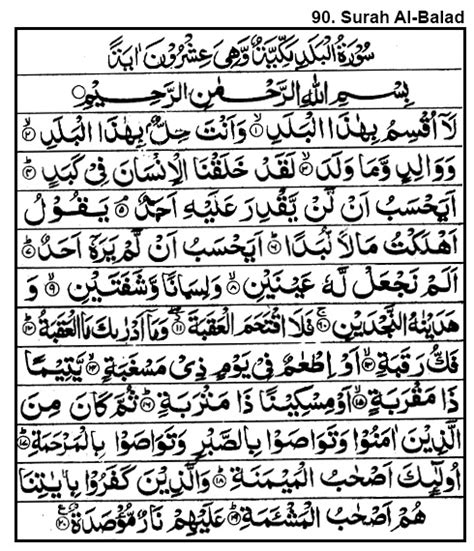 90. Surah Al-Balad
سُوْرَةُ الْبَلَدِ مَكِّيَّةٌ وَّهِیَ عِشْرُوْنَ اٰيَةً
بِسْمِ اللّٰهِ الرَّحْمٰنِ الرَّحِيْمِ
لَاۤ اُقْسِمُ بِهٰذَا الْبَلَدِ ۙ﴿۱﴾ وَاَنْتَ حِلٌّۢ بِهٰذَا الْبَلَدِ ۙ﴿۲﴾
وَوَالِدٍ وَّمَا وَلَدَ ۙ﴿۳﴾ لَقَدْ خَلَقْنَا الْاِنْسَانَ فِیْ كَبَدٍ ؕ﴿۴﴾
اَيَحْسَبُ اَنْ لَّنْ يَّقْدِرَ عَلَيْهِ اَحَدٌ ۘ﴿۵﴾ يَقُوْلُ
اَهْلَكْتُ مَالًا لُّبَدًا ؕ﴿۶﴾ اَيَحْسَبُ اَنْ لَّمْ يَرَهٗۤ اَحَدٌ ؕ﴿۷﴾
اَلَمْ نَجْعَلْ لَّهٗ عَيْنَيْنِ ۙ﴿۸﴾ وَلِسَانًا وَّشَفَتَيْنِ ۙ﴿۹﴾ وَ
هَدَيْنٰهُ النَّجْدَيْنِ ۚ﴿۱۰﴾ فَلَا اقْتَحَمَ الْعَقَبَةَ ۖ﴿۱۱﴾ وَمَاۤ اَدْرٰىكَ مَا الْعَقَبَةُ ؕ﴿۱۲﴾
فَكُّ رَقَبَةٍ ۙ﴿۱۳﴾ اَوْ اِطْعٰمٌ فِیْ يَوْمٍ ذِیْ مَسْغَبَةٍ ۙ﴿۱۴﴾ يَّتِيْمًا
ذَا مَقْرَبَةٍ ۙ﴿۱۵﴾ اَوْ مِسْكِيْنًا ذَا مَتْرَبَةٍ ؕ﴿۱۶﴾ ثُمَّ كَانَ مِنَ
الَّذِيْنَ اٰمَنُوْا وَتَوَاصَوْا بِالصَّبْرِ وَتَوَاصَوْا بِالْمَرْحَمَةِ ؕ﴿۱۷﴾
اُولٰٓئِكَ اَصْحٰبُ الْمَيْمَنَةِ ؕ﴿۱۸﴾ وَالَّذِيْنَ كَفَرُوْا بِاٰيٰتِنَا
هُمْ اَصْحٰبُ الْمَشْـَٔمَةِ ؕ﴿۱۹﴾ عَلَيْهِمْ نَارٌ مُّؤْصَدَةٌ ﴿۲۰﴾